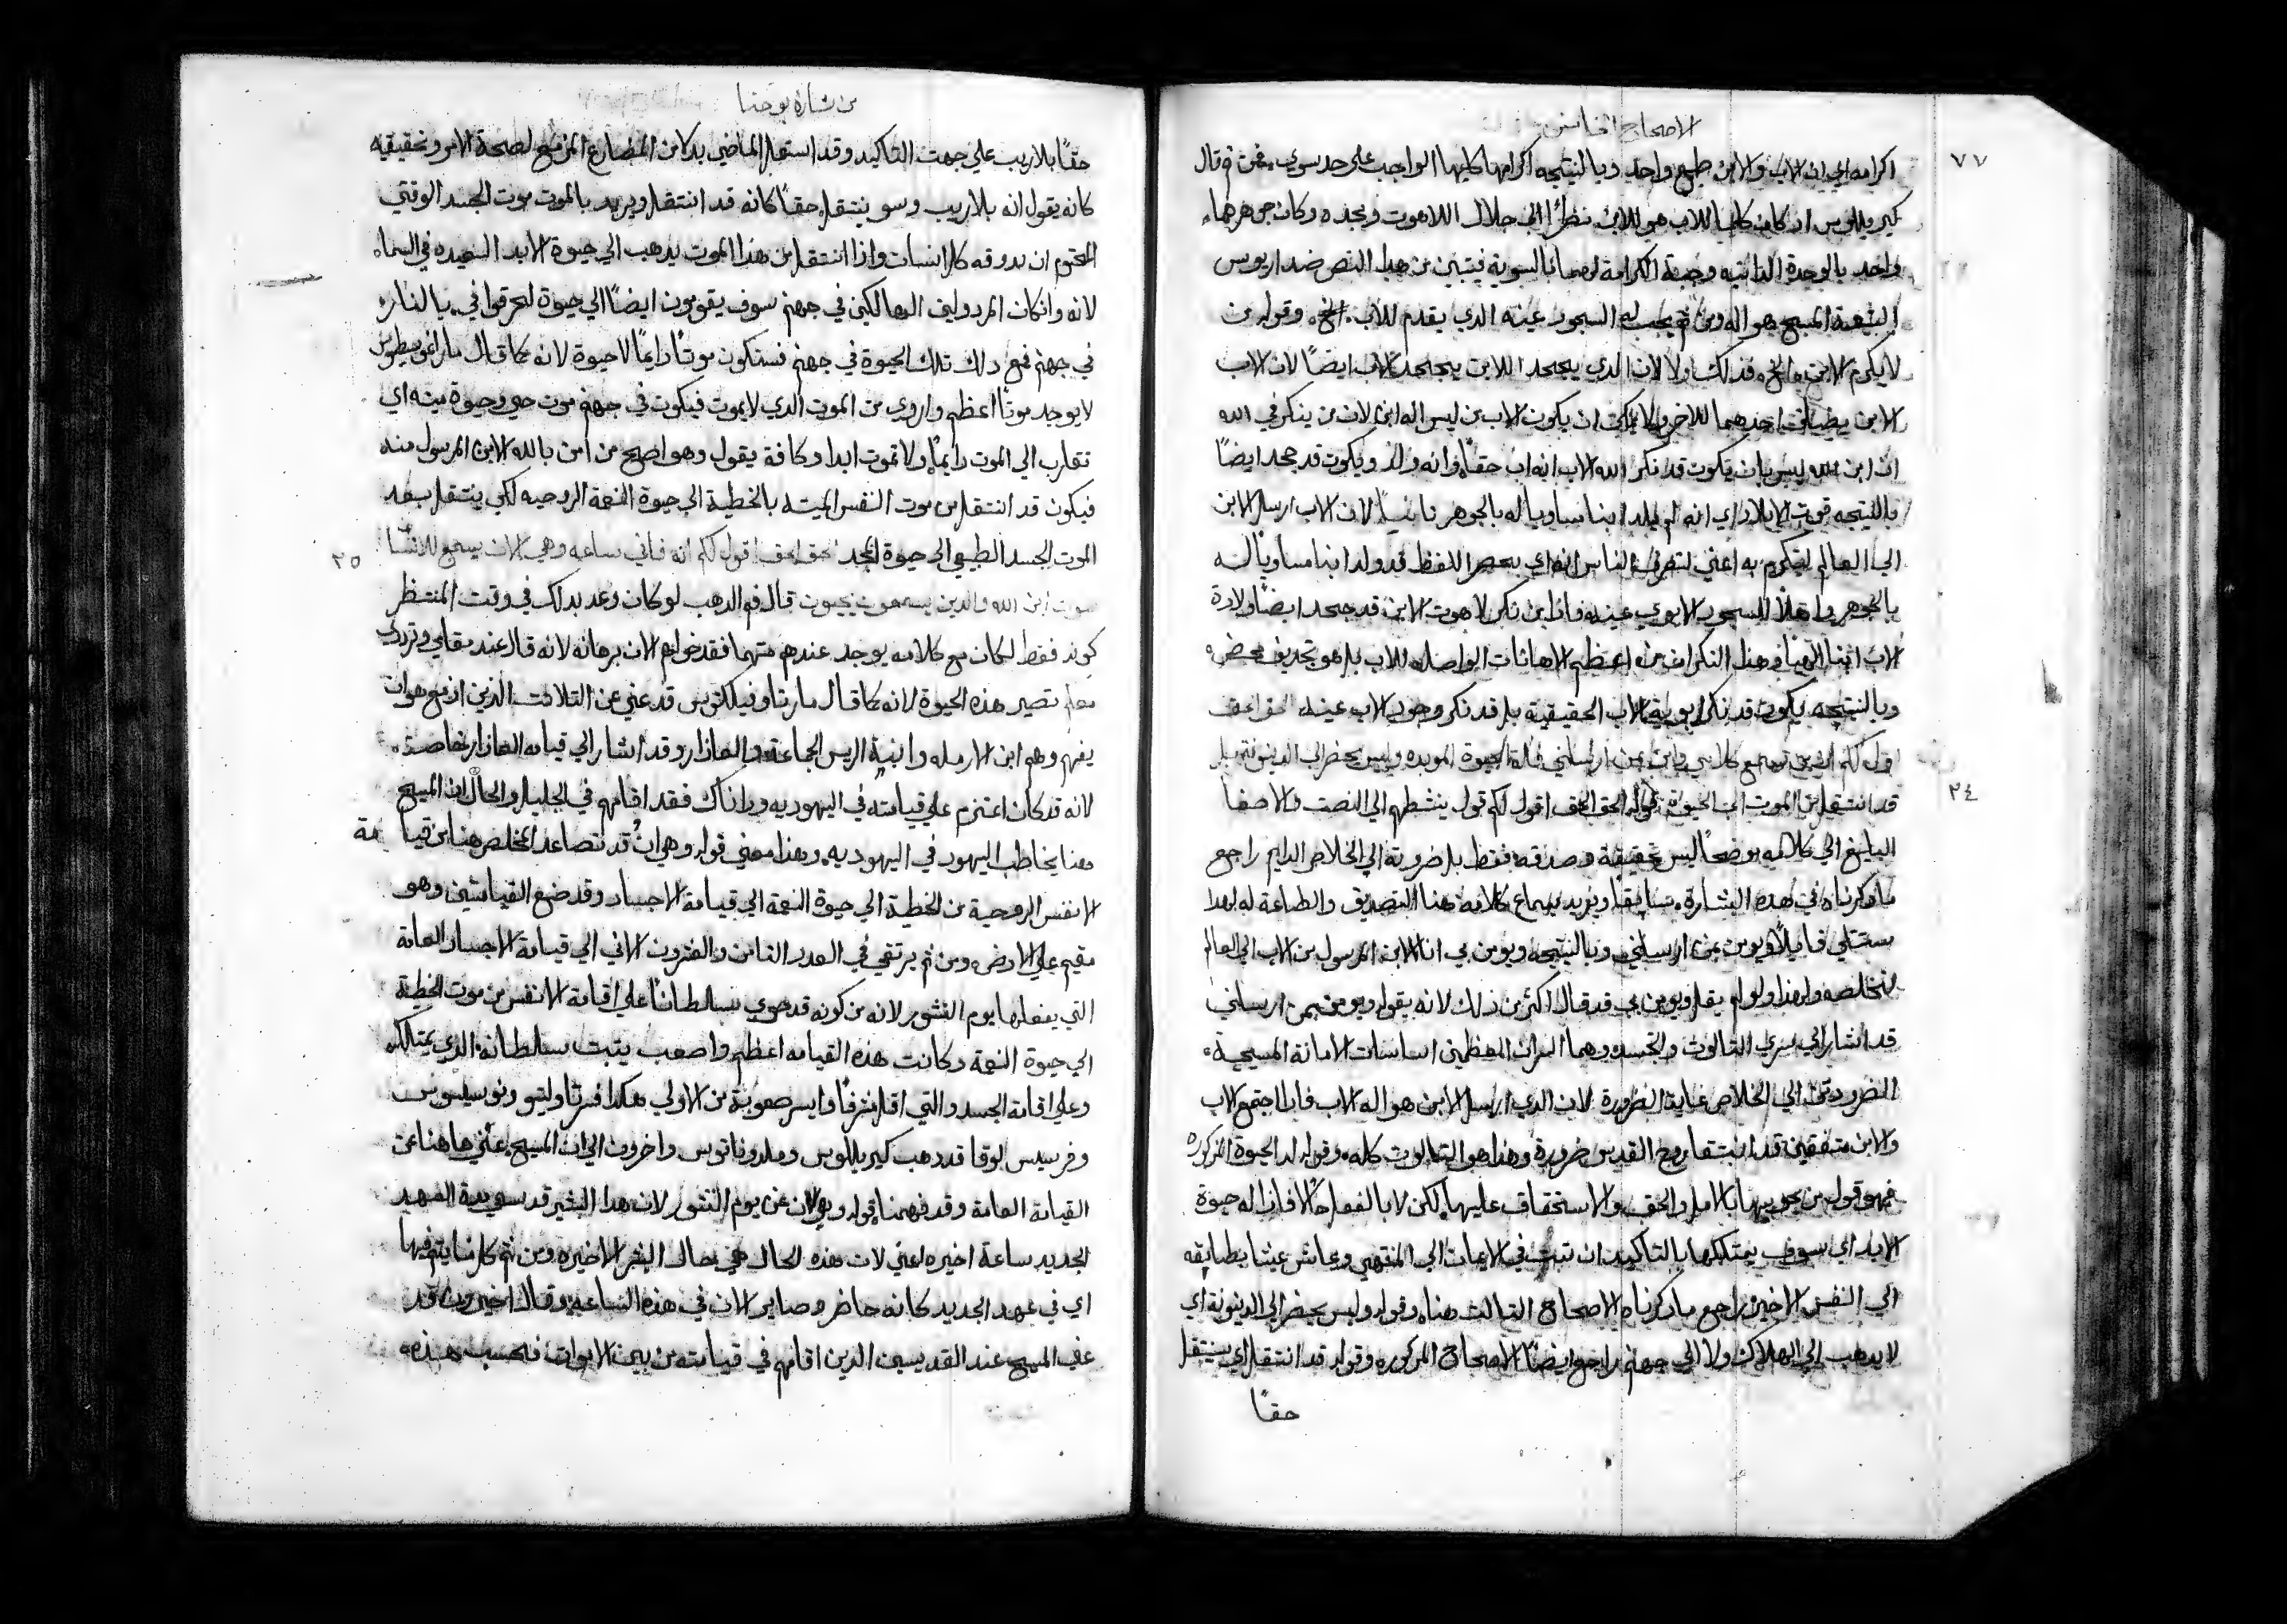 الاصحاح الخامس
٧٧
اكرامه اي ان الاب والابن طبع واحد وبالنتيجه اكرامهما كليهما الواجب علي حد سوي فمن ثم قال
كيریللوس ان كان كلما للاب هو للابن نظرًا الي جلال اللاهوت ومجده وكان جوهرهما
واحد بالوحدة الداتيه وجبة الكرامة لهما بالسوية فيتبين من هدا النص ضد اريوس
الشيعة المسيح هو اله ومن ثم يجب له السجود عينه الدي يقدم للاب الخ وقوله من
لا يكرم الابن الخ فدلك اولا لان الدي يجحد الابن يجحد الاب ايضًا لان الاب
الابن احدهما للاخر ولا يمكن ان يكون الاب من ليس اله ابن لان من ينكر في الله
ان ابن الله ليس بان يكون قد نكر الله الاب انه اب حقًا وانه والد ويكون قد جحد ايضًا
بالنتيجه قوت الايلاد اي انه لم يلد ابنا مساويا له بالجوهر ثانيًا لان الاب ارسل الابن
الي العالم ليتكرم به اعني لتعرف الناس انه اي بحصر اللفظ قد ولد ابنا مساويا له
بالجوهر واهلاً للسجود الابوي عينه فاذا من نكر لاهوت الابن قد جحد ايضًا ولادة
الاب ابنا الهيًا وهذا النكران من اعظم الاهانات الواصله للاب بل هو تجديف محض
وبالنتيجه يكون قد نكر ابوية الاب الحقيقية بل قد نكر وجود الاب عينه الحق الحق
اقول لكم ان من يسمع كلامي ويومن بمن ارسلني فله الحيوة الموبده وليس يحضر الي الدينونه بل
٢٤
قد انتقل من الموت الي الحيوة قوله الحق الحق اقول لكم قول ينشطهم الي النصت والاصغا
البليغ الي كلامه موضحًا ليس حقيقة وصدقه فقط بل ضرورته الي الخلاص الدايم راجع
ما دكرناه في هده البشارة سابقًا ويريد بسماع كلامه هنا التصديق والطاعة له لهدا
يستتلي قايلاً ويومن بمن ارسلني وبالنتيجه ويومن بي انا الابن المرسول من الاب الي العالم
لنخلصه ولهذا ولو لم يقل ويومن بي قد قال اكثر من ذلك لانه بقوله ويومن بمن ارسلني
قد اشار الي سري الثالوث والتجسد وهما السران العظمين اساسات الامانة المسيحية
الضروريتين الي الخلاص غاية الضرورة لان الدي ارسل الابن هو اله الاب فاذا اجتمع الاب
والابن متفقين قد انبثقا روح القدس ضرورة وهذا هو الثالوث كله وقوله له الحيوة المذكوره
فهو قول من يحويها بالامل والحق والاستحقاق عليها لكن لا بالفعل حالا فاذا له حيوة
الابد اي سوف يمتلكها بالتاكيد ان ثبت في الايمان الي المنتهي وعاش عيشا يطابقه
الي النفس الاخير راجع ما دكرناه الاصحاح التالت هناه وقوله وليس يحضر الي الدينونة اي
لا يدهب الي الهلاك ولا الي جهنم راجع ايضًا الاصحاح المدكوره وقوله قد انتقل اي سينتقل
حقًا
من بشارة يوحنا
حقًا بلا ريب علي جهت التاكيد وقد استعمل الماضي بدلا من المضارع المزمع لصحة الامر وتحقيقيه
كانه يقول انه بلا ريب وسو ينتقل حقًا كانه قد انتقل ويريد بالموت موت الجسد الوقتي
المحتوم ان يدوقه كل انسان واذا انتقل من هذا الموت يدهب الي حيوة الابد السعيده في السماء
لانه وان كان المردولين الهالكين في جهنم سوف يقومون ايضًا الي حيوة ليحرقوا في بالنار
في جهنم فمع دلك تلك الحيوة في جهنم فستكون موتًا دايمًا لا حيوة لانه كما قال مار اغوسطينوس
لا يوجد موتًا اعظم واروي من الموت الدي لا يموت فيكون في جهنم موت حي وحيوة ميته اي
تقارب الي الموت دايمًا ولا تموت ابدا وكافة يقول وهو اصح من امن بالله الابن المرسول منه
فيكون قد انتقل من موت النفس الميته بالخطية الي حيوة النعمة الروحيه لكي ينتقل بعد
الموت الجسد الطبيعي الي حيوة المجد الحق الحق اقول لكم انه فاني ساعه وهي الان يسمع
٢٥
صوت ابن الله والدين يسمعون يحيون قال فم الدهب لو كان وعد بدلك في وقت المنتظر
كونه فقط لكان مع كلامه يوجد عندهم متهما فقد خولهم الان برهانه لانه قال عند مقامي وترددي
معكم تصير هذه الحيوة لانه كما قال ماريتا وفيلكتوس قد عني عن التلاتت الذين ازمع هو ان
يقيهم وهم ابن الارمله وابنة الريس الجماعة والعازار وقد اشار الي قيامه العازار خاصة
لانه قد كان اعتزم علي قيامته في اليهوديه وداناك فقد اقامهم في الجليل والحال ان المسيح
هنا يخاطب اليهود في اليهوديه وهذا معني قوله وهي الان قد تصاعد المخلص هنا من قيامة
الانفس الروحية من الخطية الي حيوة النعمة الي قيامة الاجساد وقد ضع القيامتين وهو
مقيم علي الارض ومن ثم يرتقي في العدد الثامن والعشرون الاتي الي قيامة الاجساد العامة
التي يفعلها يوم النشور لانه من كونه قد حوي سلطانًا علي اقامة الانفس من موت الخطية
الي حيوة النعمة وكانت هذه القيامه اعظم واصعب يتبت سلطانه الدي يمتلكه
وعلي اقامة الجسد والتي اقل شرفًا وايسر صعوبة من الاولي هكدا فسر تاوليتو ونوسيلوس
وفرسيس لوقا قد دهب كيريللوس وملدوناتوس واخرون الي ان المسيح عني هاهنا عن
القيامة العامة وقد فهمنا قوله وهي الان عن يوم النشور لان هدا البشير قد سمي مدة العهد
الجديد ساعة اخيره اعني لان هذه الحال هي حال البشر الاخيره ومن ثم كلما يتم فيها
اي في عهد الجديد كانه حاضر وصاير الان في هذه الساعة وقال اخرون قد
عني المسيح عند القديسين الدين اقامهم في قيامته من بين الاموات فحسب هذه